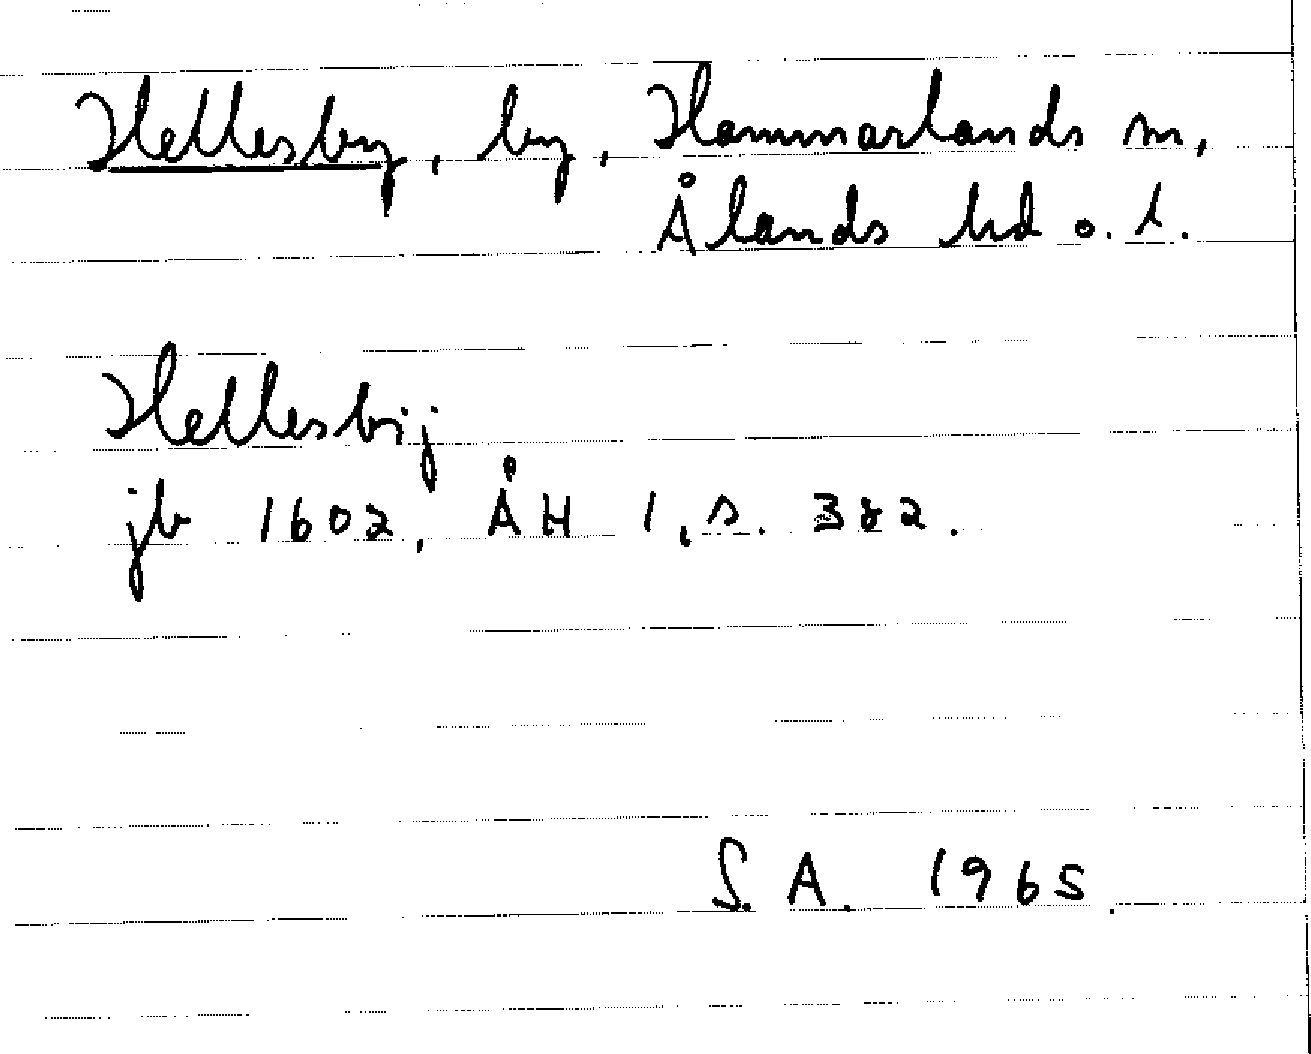 Hellesby, by, Hammarlands sn,
Ålands hd o. l.
Hellesbij
jb 1602, ÅH 1, s. 382.
S. A. 1965.